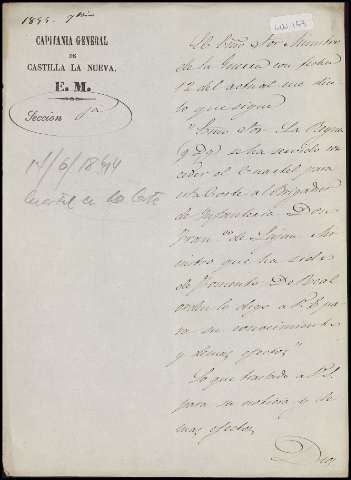 CAPITANIA GENERAL
DE
CASTILLA LA NUEVA.
E. M.
Seccion
El Exmo Sor Ministro
de la Guerra con fecha
12 del actual me dice
lo que sigue
"Exmo Sor. La Reyna
q D g se ha servido con
ceder el Cuartel para
esta Corte al Brigadier
de Infanteria Don
Franco de Lujan Mi
nistro que ha sido
de fomento. De Real
orden lo digo a V.E. pa
ra su conocimiento
y demas efectos"
Lo que traslado a V.S.
para su noticia y de
mas efectos,
Dios
14/6/1844
Cuartel en la Corte